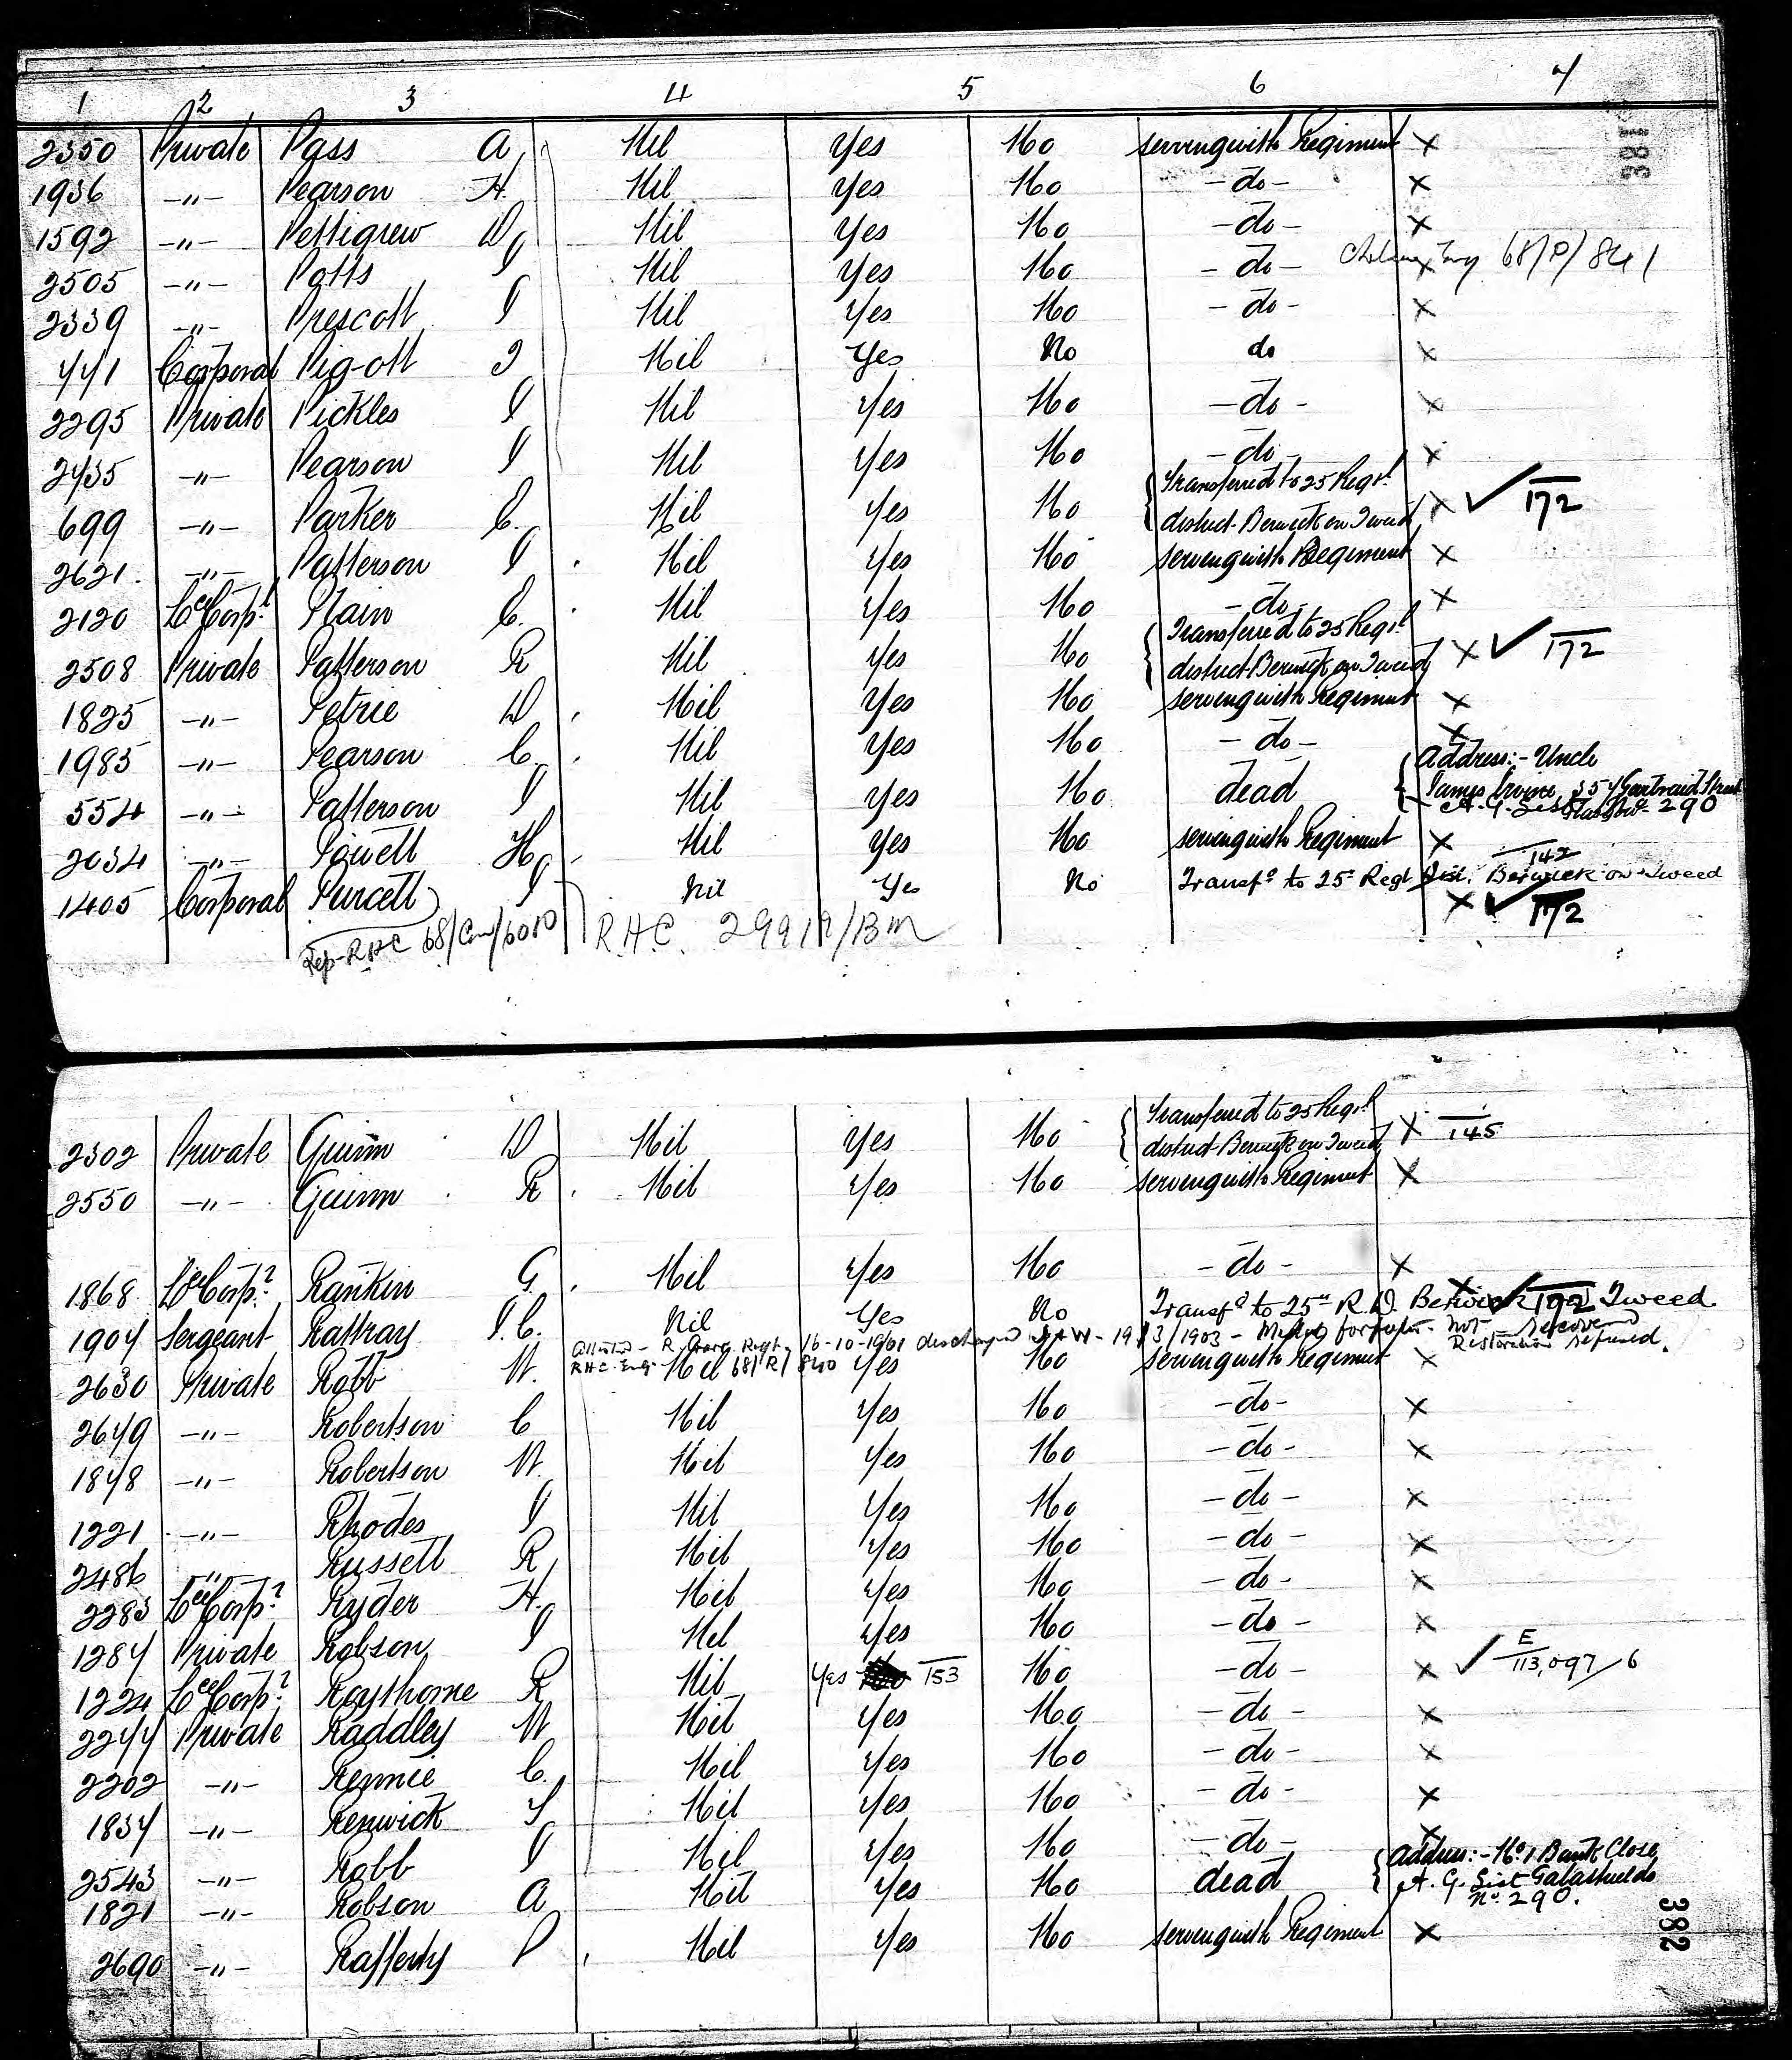 1 2 3 4 5 6 7
381
2350 Private Pass A Nil Yes No serving with Regiment X
1936 -"- Pearson H. Nil Yes No -do- X
1592 -"- Pettigrew D Nil Yes No -do- X
2505 -"- Potts J Nil Yes No -do- X 68/P/841
2339 -"- Prescott J Nil Yes No -do- X
441 Corporal Pigott J Nil Yes No do X
2295 Private Pickles J Nil Yes No -do- X
2435 -"- Pearson J Nil Yes No -do- X
699 -"- Parker C. Nil Yes No { Transferred to 25 Regtl X ✓ 172
district Berwick on Tweed
2621. -"- Patterson J Nil Yes No serving with Regiment X
2120 Lce Corpl Plain C. Nil Yes No -do- X
2508 Private Patterson R Nil Yes No { Transferred to 25 Regtl X ✓ 172
district Berwick on Tweed
1825 -"- Petrie D Nil Yes No serving with Regiment X
1985 -"- Pearson C. Nil Yes No -do- X
554 -"- Patterson J Nil Yes No dead { Address:- Uncle
James Irvine, Street
A. G. List Glasgow No 290
2034 -"- Powell H Nil Yes No serving with Regiment X
142
1405 Corporal Purcell J Nil Yes No Transfd to 25 Regl Dist. Berwick on Tweed
X ✓ 172
Rep-RHC 68/Gen/6010 R.H.C. 29919/BM
2302 Private Quinn D Nil Yes No { Transferred to 25 Regtl X 145
district Berwick on Tweed
2550 -"- Quinn R Nil Yes No serving with Regiment X
1868 Lce Corpl Rankin G. Nil Yes No -do- X
1904 Sergeant Rattray J.C. Nil Yes No Transfd to 25th R.D. Berwick on Tweed X ✓ 192
R. Garr. Regt. 16-10-1901 discharged 19/3/1903 - Medals forfeited - not recovered
Restoration refused.
2630 Private Robb W. Nil Yes No serving with Regiment X
RHC. Eng. 68/R/840
2649 -"- Robertson C Nil Yes No -do- X
1848 -"- Robertson W. Nil Yes No -do- X
1221 -"- Rhodes J Nil Yes No -do- X
2486 -"- Russell R Nil Yes No -do- X
2283 Lce Corpl Ryder H. Nil Yes No -do- X
1284 Private Robson J Nil Yes No -do- X
1224 Lce Corpl Roythorne R Nil Yes 153 No -do- X ✓ E/113,097/6
2244 Private Raddley W Nil Yes No -do- X
2202 -"- Rennie C. Nil Yes No -do- X
1834 -"- Renwick T Nil Yes No -do- X
2543 -"- Robb J Nil Yes No -do- X
1821 -"- Robson A Nil Yes No dead { Address:- No 1 Bank Close
A. G. List Galashields
No. 290.
2690 -"- Rafferty P Nil Yes No serving with Regiment X
382